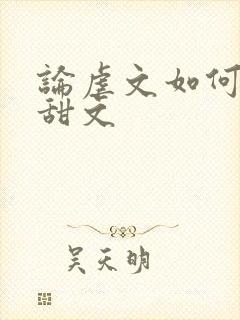 論虐文如何
甜文
吴天明